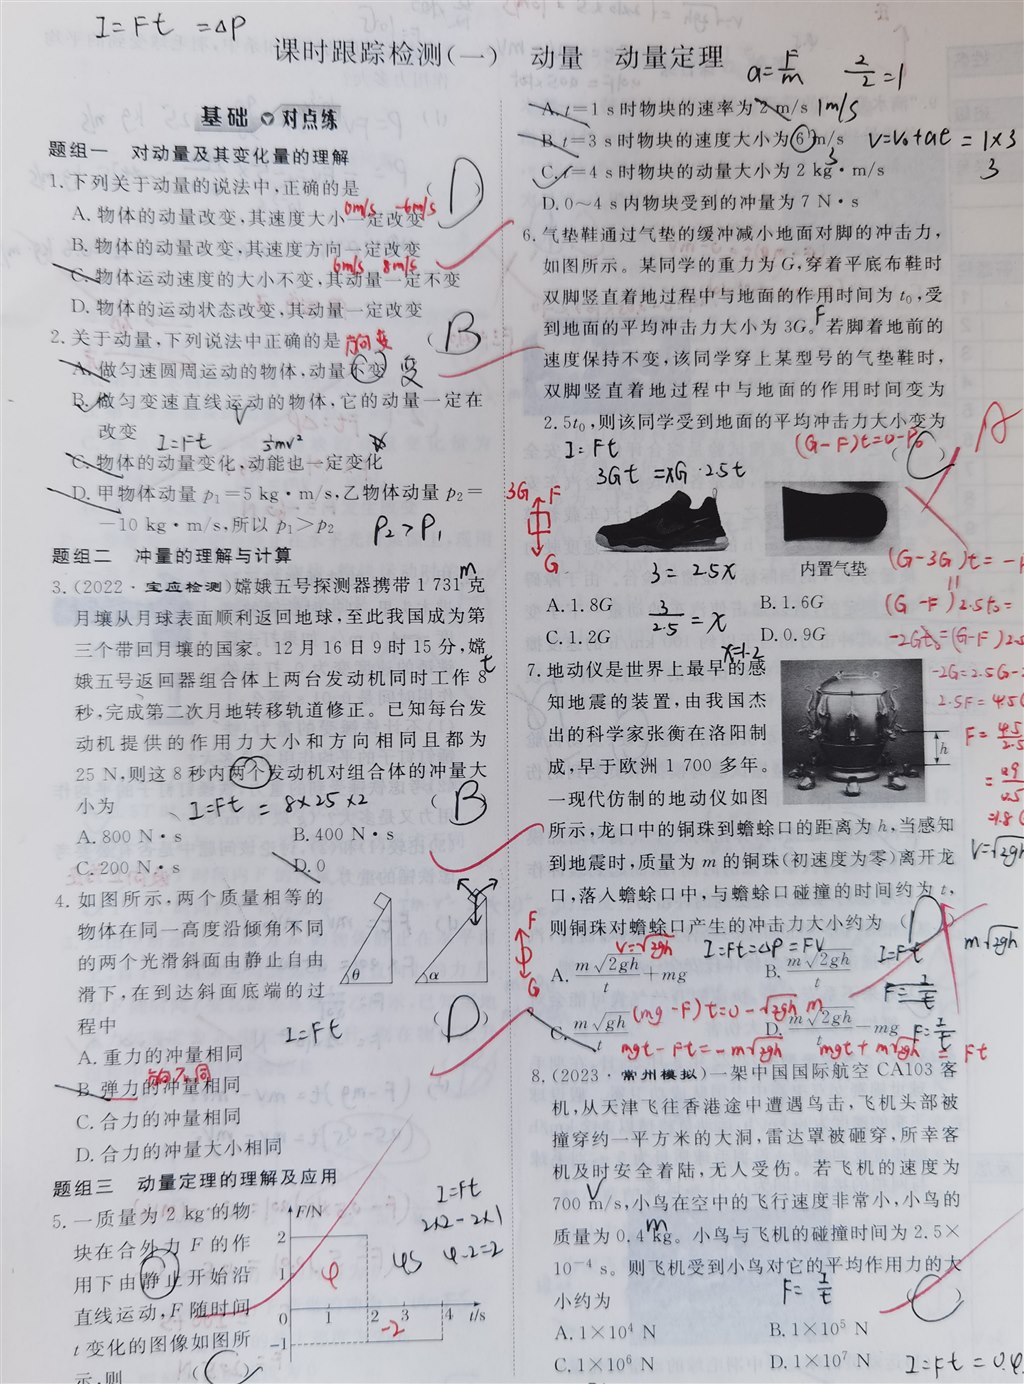 I=Ft =ΔP
课时跟踪检测(一) 动量 动量定理
基础 对点练
题组一 对动量及其变化量的理解
1.下列关于动量的说法中,正确的是 (D)
0m/s -6m/s
A.物体的动量改变,其速度大小一定改变
B.物体的动量改变,其速度方向一定改变
6m/s 8m/s
C.物体运动速度的大小不变,其动量一定不变
D.物体的运动状态改变,其动量一定改变
2.关于动量,下列说法中正确的是 方向变 (B)
A.做匀速圆周运动的物体,动量不变 变
B.做匀变速直线运动的物体,它的动量一定在
改变
I=Ft ½mv²
C.物体的动量变化,动能也一定变化
D.甲物体动量 p₁=5 kg·m/s,乙物体动量 p₂=
-10 kg·m/s,所以 p₁>p₂ P₂>P₁
题组二 冲量的理解与计算
3.(2022·宝应检测)嫦娥五号探测器携带 1 731 克
m
月壤从月球表面顺利返回地球,至此我国成为第
三个带回月壤的国家。12 月 16 日 9 时 15 分,嫦
t
娥五号返回器组合体上两台发动机同时工作 8
秒,完成第二次月地转移轨道修正。已知每台发
动机提供的作用力大小和方向相同且都为
25 N,则这 8 秒内两个发动机对组合体的冲量大
小为 I=Ft = 8×25×2 (B)
A.800 N·s B.400 N·s
C.200 N·s D.0
4.如图所示,两个质量相等的
物体在同一高度沿倾角不同
的两个光滑斜面由静止自由
滑下,在到达斜面底端的过
程中 I=Ft (D)
θ α
A.重力的冲量相同
方向不同
B.弹力的冲量相同
C.合力的冲量相同
D.合力的冲量大小相同
题组三 动量定理的理解及应用
5.一质量为 2 kg 的物
块在合外力 F 的作
用下由静止开始沿
直线运动,F 随时间
t 变化的图像如图所
示,则 (C)
F/N
2
1
0 1 2 3 4 t/s
-1
4
-2
I=Ft
2×2-2×1
4s 4-2=2
a=F/m 2/2=1
A.t=1 s 时物块的速率为 2 m/s 1m/s
B.t=3 s 时物块的速度大小为 6 m/s v=v₀+at = 1×3
3 3
C.t=4 s 时物块的动量大小为 2 kg·m/s
D.0~4 s 内物块受到的冲量为 7 N·s
6.气垫鞋通过气垫的缓冲减小地面对脚的冲击力,
如图所示。某同学的重力为 G,穿着平底布鞋时
双脚竖直着地过程中与地面的作用时间为 t₀,受
到地面的平均冲击力大小为 3G。若脚着地前的
F
速度保持不变,该同学穿上某型号的气垫鞋时,
双脚竖直着地过程中与地面的作用时间变为
2.5t₀,则该同学受到地面的平均冲击力大小变为
(C) A
I=Ft (G-F)t=0-P₀
3Gt =xG·2.5t
3G F
G
内置气垫
3 = 2.5x
3/2.5 = x
x=1.2
(G-3G)t=-P
(G-F)2.5t₀=
-2Gt₀=(G-F)2.5
-2G=2.5G-2
2.5F=4.5G
A.1.8G B.1.6G
C.1.2G D.0.9G
7.地动仪是世界上最早的感
知地震的装置,由我国杰
出的科学家张衡在洛阳制
成,早于欧洲 1 700 多年。
一现代仿制的地动仪如图
h
所示,龙口中的铜珠到蟾蜍口的距离为 h,当感知
到地震时,质量为 m 的铜珠(初速度为零)离开龙
口,落入蟾蜍口中,与蟾蜍口碰撞的时间约为 t,
则铜珠对蟾蜍口产生的冲击力大小约为 (D)
V=√2gh
m√2gh
F
G
v=√2gh I=Ft=ΔP=FV I=Ft
A. m√2gh/t +mg B. m√2gh/t
F=I/t
C. m√gh/t D. m√2gh/t -mg F=I/t
(mg-F)t=0-√2gh m
mgt-Ft=-m√2gh mgt+m√2gh = Ft
8.(2023·常州模拟)一架中国国际航空 CA103 客
机,从天津飞往香港途中遭遇鸟击,飞机头部被
撞穿约一平方米的大洞,雷达罩被砸穿,所幸客
机及时安全着陆,无人受伤。若飞机的速度为
V
700 m/s,小鸟在空中的飞行速度非常小,小鸟的
m
质量为 0.4 kg。小鸟与飞机的碰撞时间为 2.5×
10⁻⁴ s。则飞机受到小鸟对它的平均作用力的大
小约为 F=I/t (C)
A.1×10⁴ N B.1×10⁵ N
C.1×10⁶ N D.1×10⁷ N I=Ft=0.4